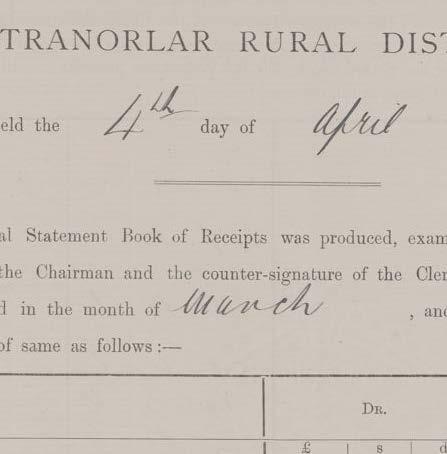 TRANORLAR RURAL DIST
eld the 4th day of April
al Statement Book of Receipts was produced, exam
the Chairman and the counter-signature of the Cler
d in the month of March , and
of same as follows :—
DR.
£ s d